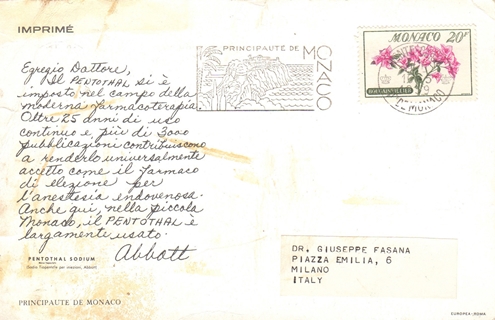 IMPRIMÉ
Egregio Dottore,
Il PENTOTHAL si è
imposto nel campo della
moderna farmacoterapia.
Oltre 25 anni di uso
continuo e più di 3000
pubblicazioni contribuiscono
a renderlo universalmente
accetto come il farmaco
di elezione per
l'anestesia endovenosa.
Anche qui nella piccola
Monaco, il PENTOTHAL è
largamente usato.
Abbott
PENTOTHAL SODIUM
PRINCIPAUTE DE MONACO
PRINCIPAUTE DE
MONACO
MONACO 20F
BOUGAINVILLÉE
DR. GIUSEPPE FASANA
PIAZZA EMILIA, 6
MILANO
ITALY
EUROPEA-ROMA